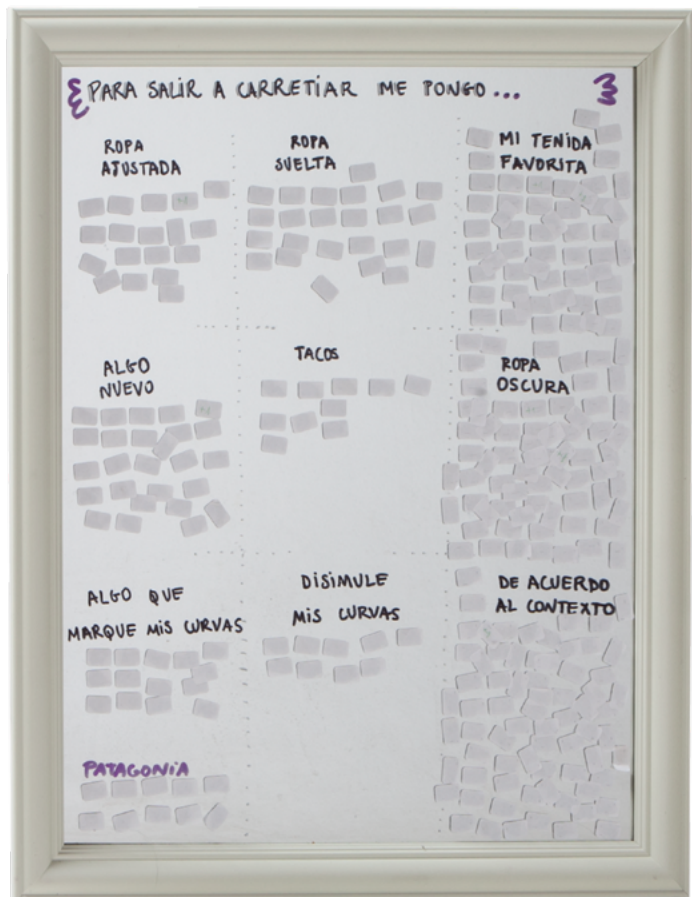 PARA SALIR A CARRETIAR ME PONGO...
ROPA
AJUSTADA
ROPA
SUELTA
MI TENIDA
FAVORITA
ALGO
NUEVO
TACOS
ROPA
OSCURA
ALGO QUE
MARQUE MIS CURVAS
DISIMULE
MIS CURVAS
DE ACUERDO
AL CONTEXTO
PATAGONIA